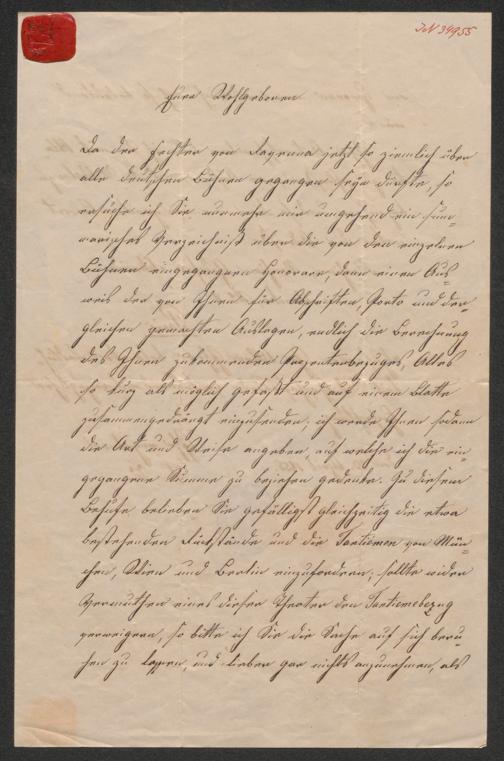 IN 34955
Euer Wohlgeboren
Da der Fechter von Ravenna jetzt so ziemlich über
alle deutschen Bühnen gegangen seyn dürfte, so
ersuche ich Sie nunmehr mir umgehend ein sum=
marisches Verzeichniß über die von den einzelnen
Bühnen eingegangenen Honorare, dann einen Aus=
weis der von Ihnen für Abschriften, Porto und der=
gleichen gemachten Auslagen, endlich die Berechnung
des Ihnen zukommenden Prozentenbezuges, Alles
so kurz als möglich gefaßt und auf einem Blatte
zusammengedrängt einzusenden; ich werde Ihnen sodann
die Art und Weise angeben, auf welche ich die ein=
gegangene Summe zu beziehen gedenke. Zu diesem
Behufe belieben Sie gefälligst gleichzeitig die etwa
bestehenden Rückstände und die Tantiemen von Mün=
chen, Wien und Berlin einzufordern; sollte wider
Vermuthen eines dieser Theater den Tantiemebezug
verweigern, so bitte ich Sie die Sache auf sich beru=
hen zu lassen, und lieber gar nichts anzunehmen, als